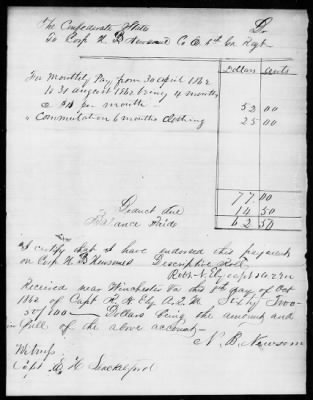 The Confederate States Dr.
To Corp H. B Newsome Co E 6th Ga Regt
Dollars Cents
For Monthly Pay from 30 april 1862
to 31 august 1862 being 4 months
@ $13 per month 52 00
" Commutation 6 months clothing 25 00
77 00
Deduct due 14 50
Balance Paide 62 50
I certify that I have endorsed this payment
on Corp H. B Newsomes Descriptive Roll
Robt. N. Ely capt &
Received near Winchester Va this 8th day of Oct
1862 of Capt R. N. Ely A. Q. M Sixty Two
50/100 Dollars being the amount and
in full of the above account
N. B. Newsom
Witness
Capt H Shackelford